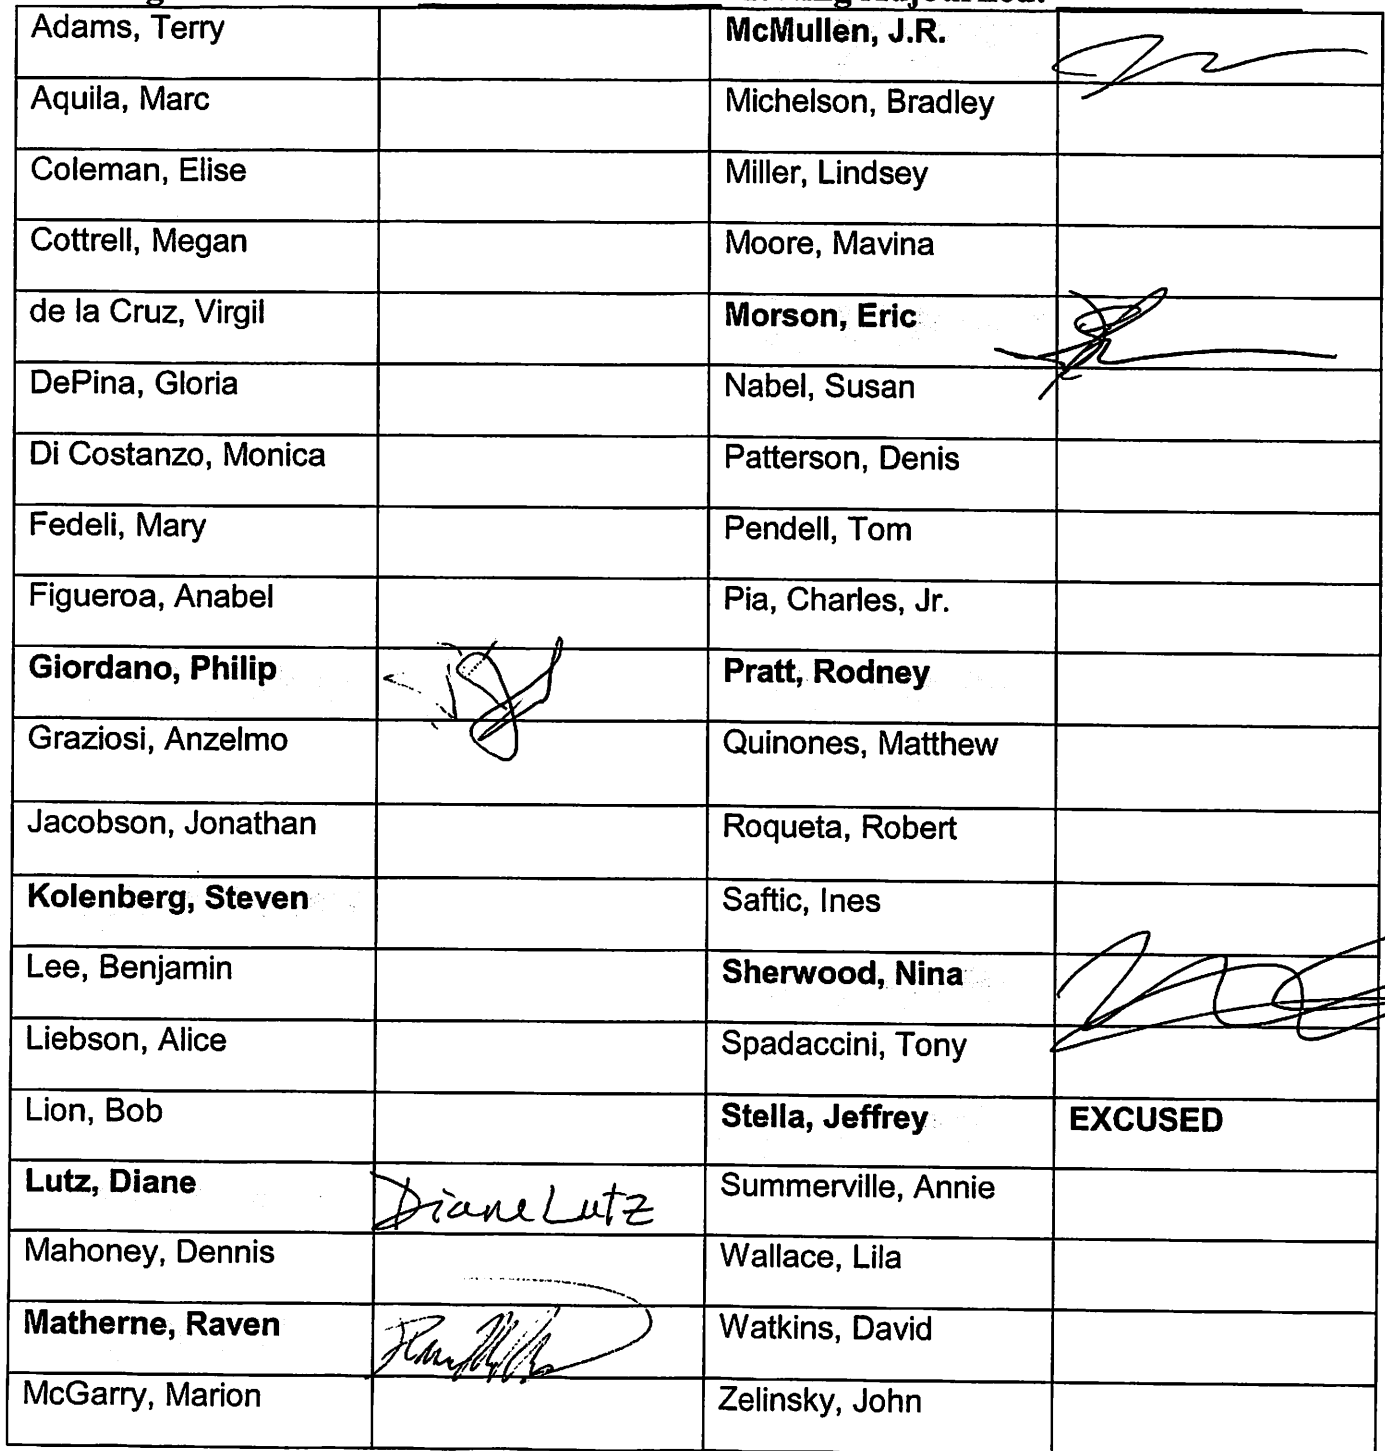 Adams, Terry McMullen, J.R.
Aquila, Marc Michelson, Bradley
Coleman, Elise Miller, Lindsey
Cottrell, Megan Moore, Mavina
de la Cruz, Virgil Morson, Eric
DePina, Gloria Nabel, Susan
Di Costanzo, Monica Patterson, Denis
Fedeli, Mary Pendell, Tom
Figueroa, Anabel Pia, Charles, Jr.
Giordano, Philip Pratt, Rodney
Graziosi, Anzelmo Quinones, Matthew
Jacobson, Jonathan Roqueta, Robert
Kolenberg, Steven Saftic, Ines
Lee, Benjamin Sherwood, Nina
Liebson, Alice Spadaccini, Tony
Lion, Bob Stella, Jeffrey EXCUSED
Lutz, Diane Diane Lutz Summerville, Annie
Mahoney, Dennis Wallace, Lila
Matherne, Raven Watkins, David
McGarry, Marion Zelinsky, John